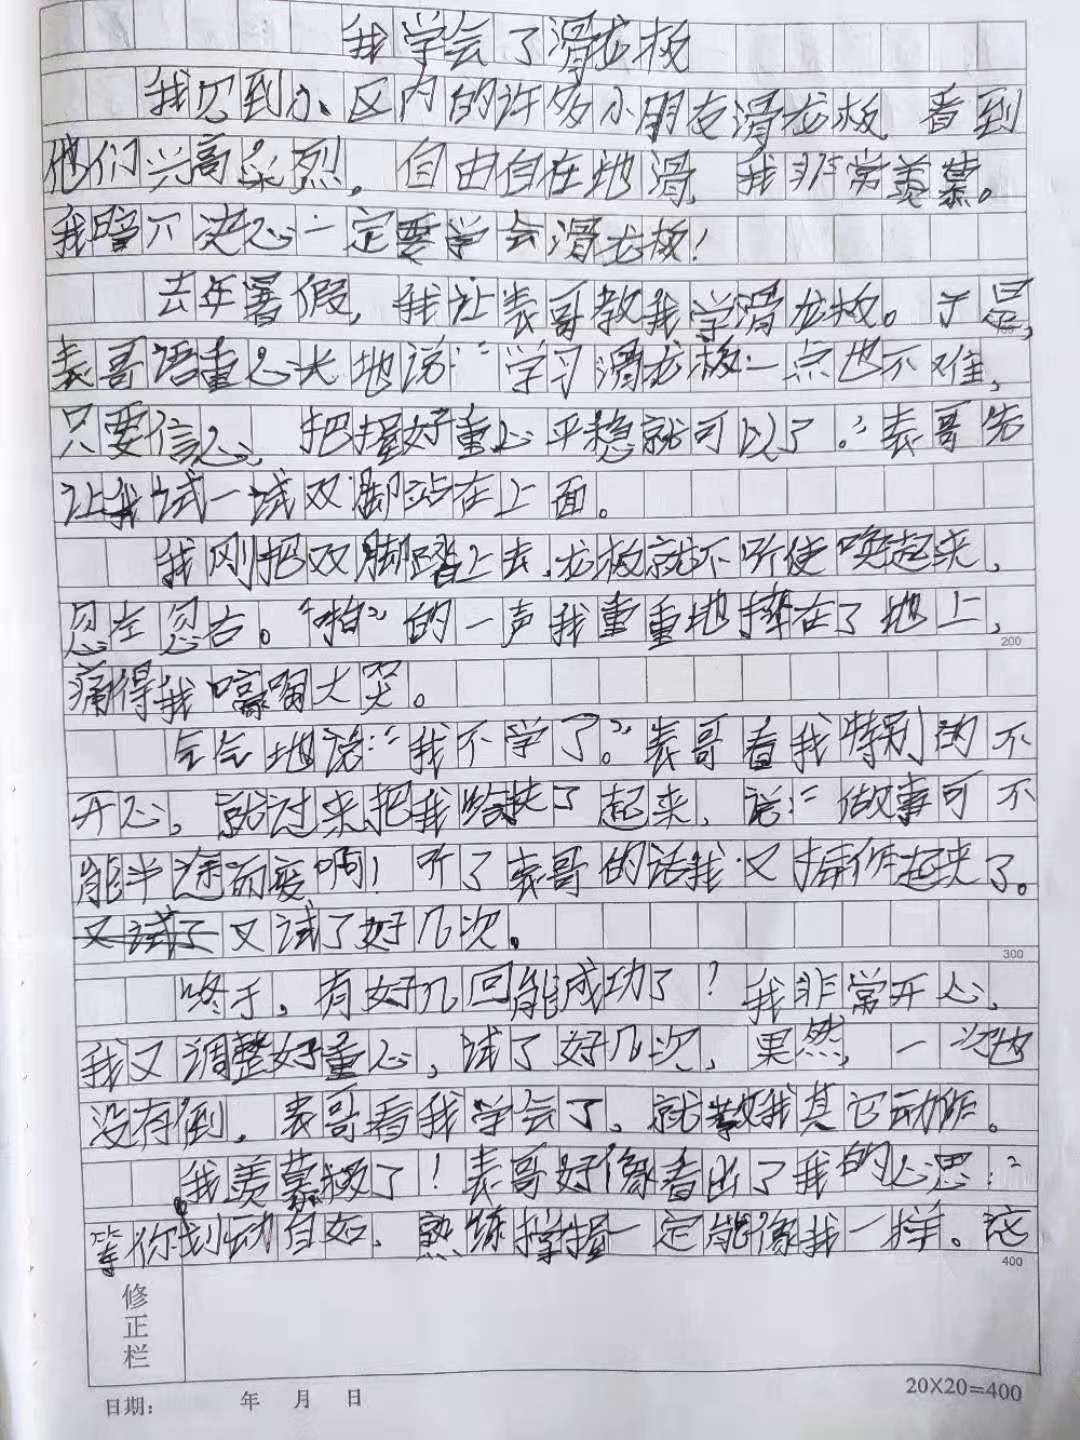 我学会了滑龙板
我见到小区内的许多小朋友滑龙板 看到
他们兴高采烈，自由自在地滑，我非常羡慕。
我暗下决心一定要学会滑龙板！
去年暑假，我让表哥教我学滑龙板。于是，
表哥语重心长地说：“学习滑龙板一点也不难，
只要信心，把握好重心平稳就可以了。”表哥先
让我试一试双脚站在上面。
我刚把双脚踏上去，龙板就不听使唤起来，
忽左忽右。“拍”的一声我重重地摔在了地上，
痛得我嚎啕大哭。
气气地说：“我不学了。”表哥看我特别的不
开心，就过来把我给扶了起来，说：“做事可不
能半途而废啊！听了表哥的话我又振作起来了。
又试了又试了好几次。
终于，有好几回能成功了？我非常开心，
我又调整好重心，试了好几次，果然，一次也
没有倒，表哥看我学会了，就教我其它动作。
我羡慕极了！表哥好像看出了我的心思：“
等你划动自如，熟练掌握一定能像我一样。这
200
300
400
修正栏
日期： 年 月 日
20X20=400